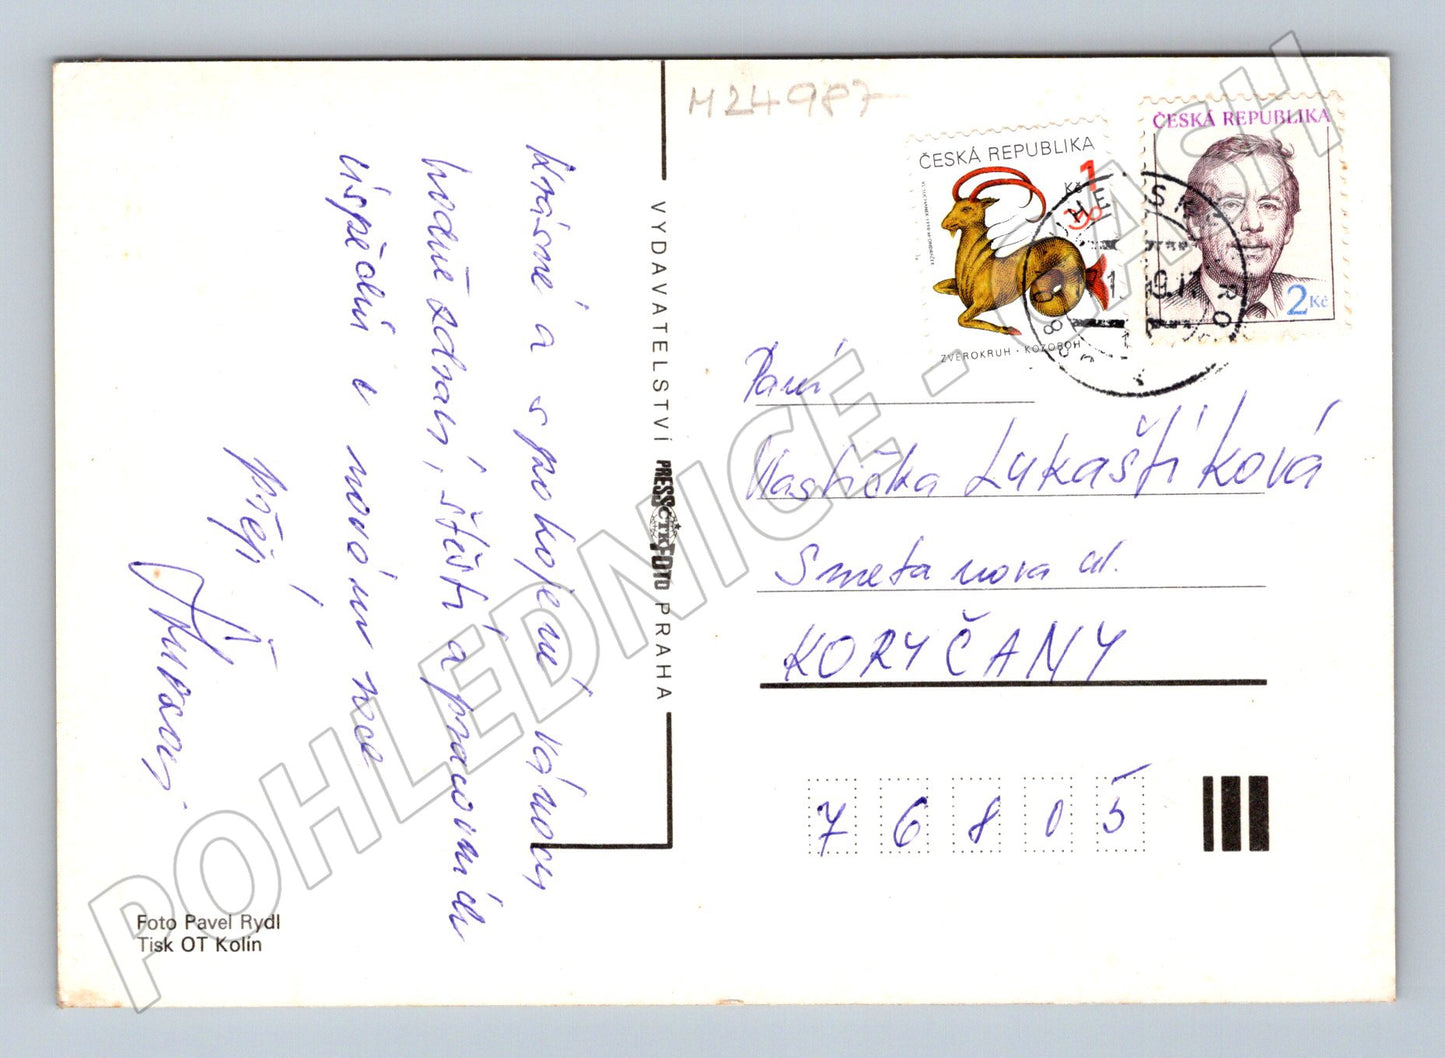 M24987
Krásné a spokojené vánoce
hodně zdraví, štěstí a pracovních
úspěchů v novém roce
přejí
VYDAVATELSTVÍ PRESSFOTO PRAHA
ČTK
Foto Pavel Rydl
Tisk OT Kolín
ČESKÁ REPUBLIKA
1 Kč
ZVĚROKRUH · KOZOROH
ČESKÁ REPUBLIKA
2 Kč
Paní
Vlastička Lukaštíková
Smetanova ul.
KORYČANY
76805
POHLEDNICE - CASH